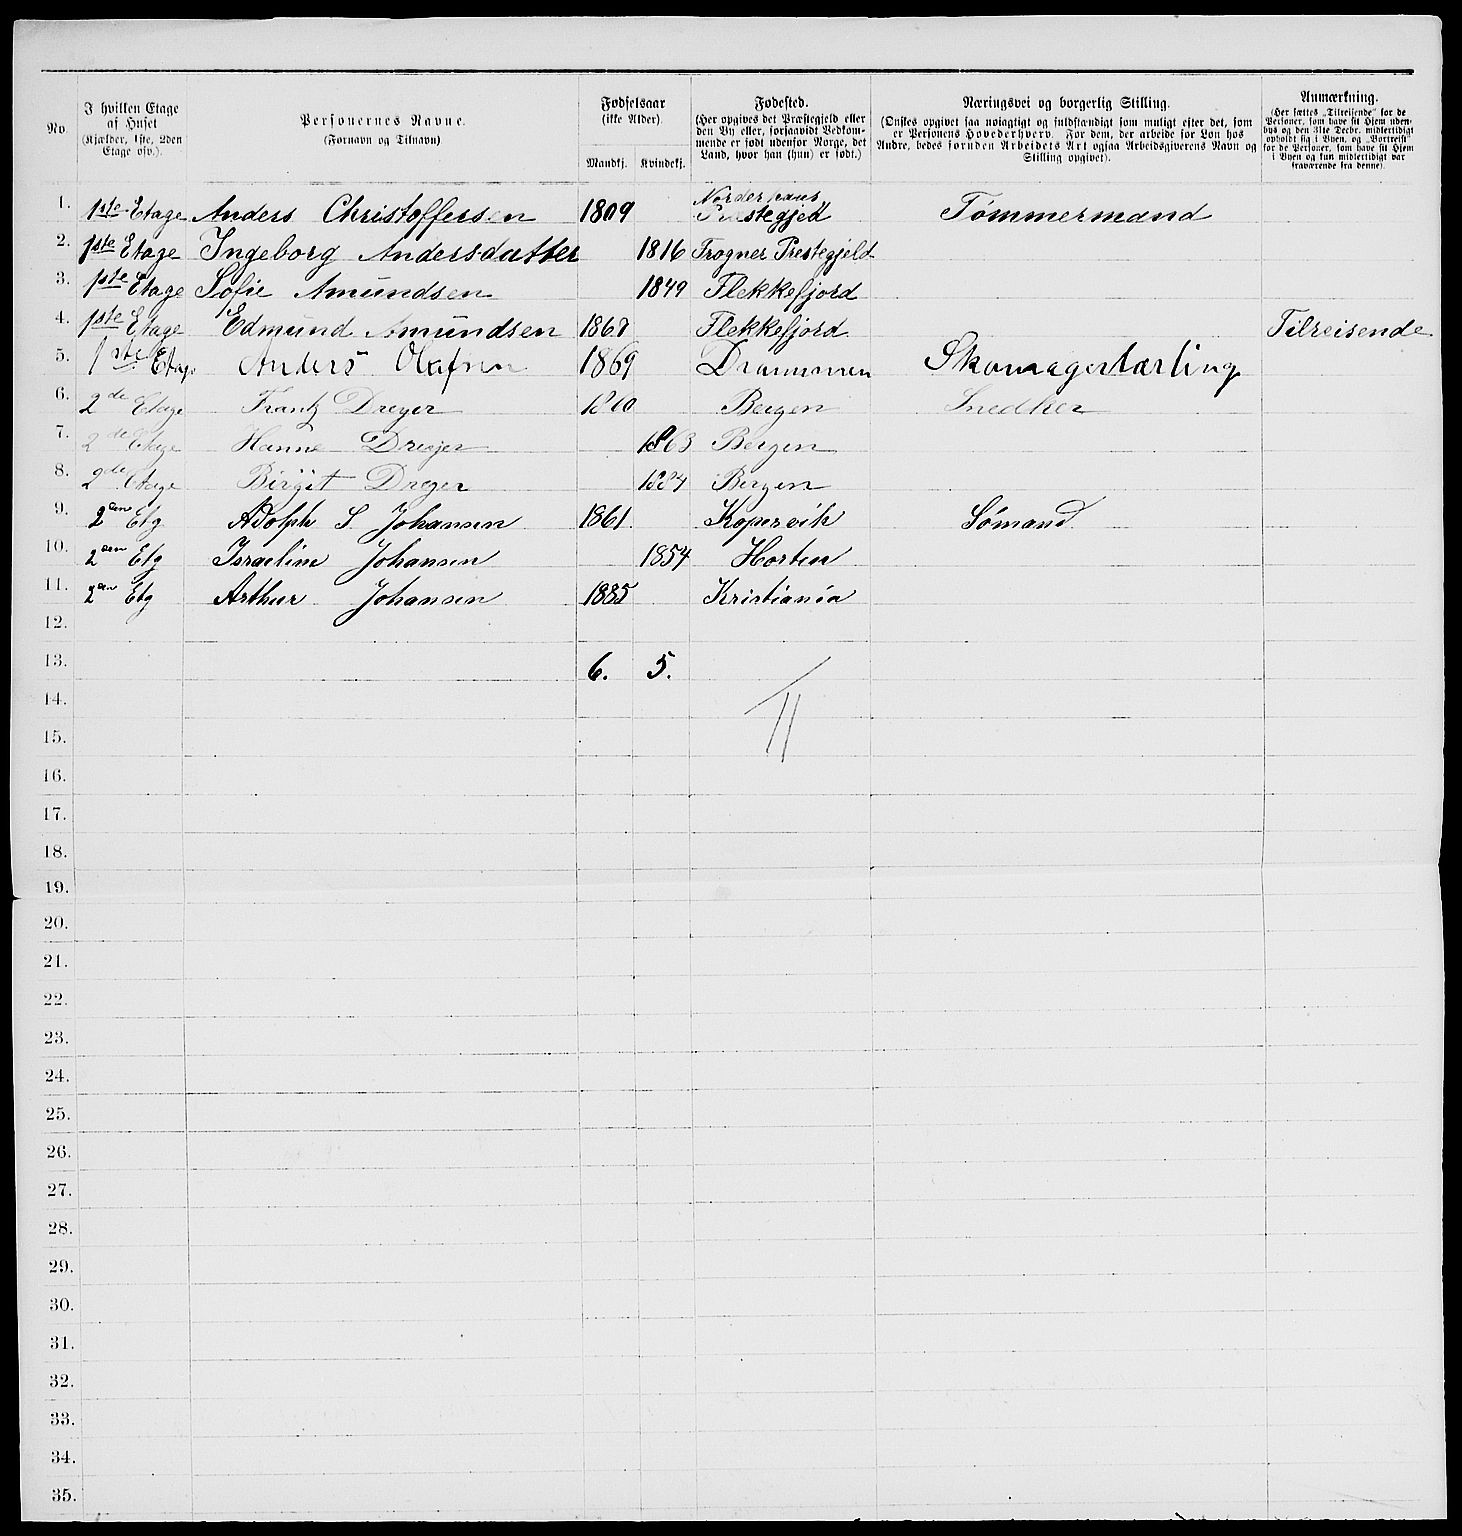 No.
I hvilken Etage af Huset (Kjælder, 1ste, 2den Etage osv.).
Personernes Navne. (Fornavn og Tilnavn)
Fødselsaar (ikke Alder).
Mandkj. Kvindekj.
Fødested. (Her opgives det Præstegjeld eller den By eller, forsaavidt Vedkommende er født udenfor Norge, det Land, hvor han (hun) er født.)
Næringsvei og borgerlig Stilling. (Ønskes opgivet saa nøiagtigt og fuldstændigt som muligt efter det, som er Personens Hovederhverv. For dem, der arbeide for Løn hos Andre, bedes foruden Arbeidets Art ogsaa Arbeidsgiverens Navn og Stilling opgivet).
Anmærkning. (Her sættes „Tilreisende" for de Personer, som have sit Hjem udenbys og den 31te Decbr. midlertidigt opholdt sig i Byen, og „Bortreist" for de Personer, som have sit Hjem i Byen og kun midlertidigt var fraværende fra denne).
1. 1ste Etage Anders Christoffersen 1809 Norderhaus Prestegjed Tømmermand
2. 1ste Etage Ingeborg Andersdatter 1816 Frogner Prestegjeld
3. 1ste Etage Sofie Amundsen 1849 Flekkefjord
4. 1ste Etage Edmund Amundsen 1868 Flekkefjord Tilreisende
5. 1ste Etage Anders Olafsen 1869 Drammen Skomagerlærling
6. 2de Etage Frantz Dreyer 1860 Bergen Snedker
7. 2de Etage Hanne Dreyer 1863 Bergen
8. 2de Etage Birgit Dreyer 1884 Bergen
9. 2den Etg Adolph S. Johansen 1861 Kopervik Sømand.
10. 2den Etg Israeline Johansen 1854 Horten
11. 2den Etg Arthur Johansen 1885 Kristiania
12.
13. 6. 5.
14.
15.
16.
17.
18.
19.
20.
21.
22.
23.
24.
25.
26.
27.
28.
29.
30.
31.
32.
33.
34.
35.